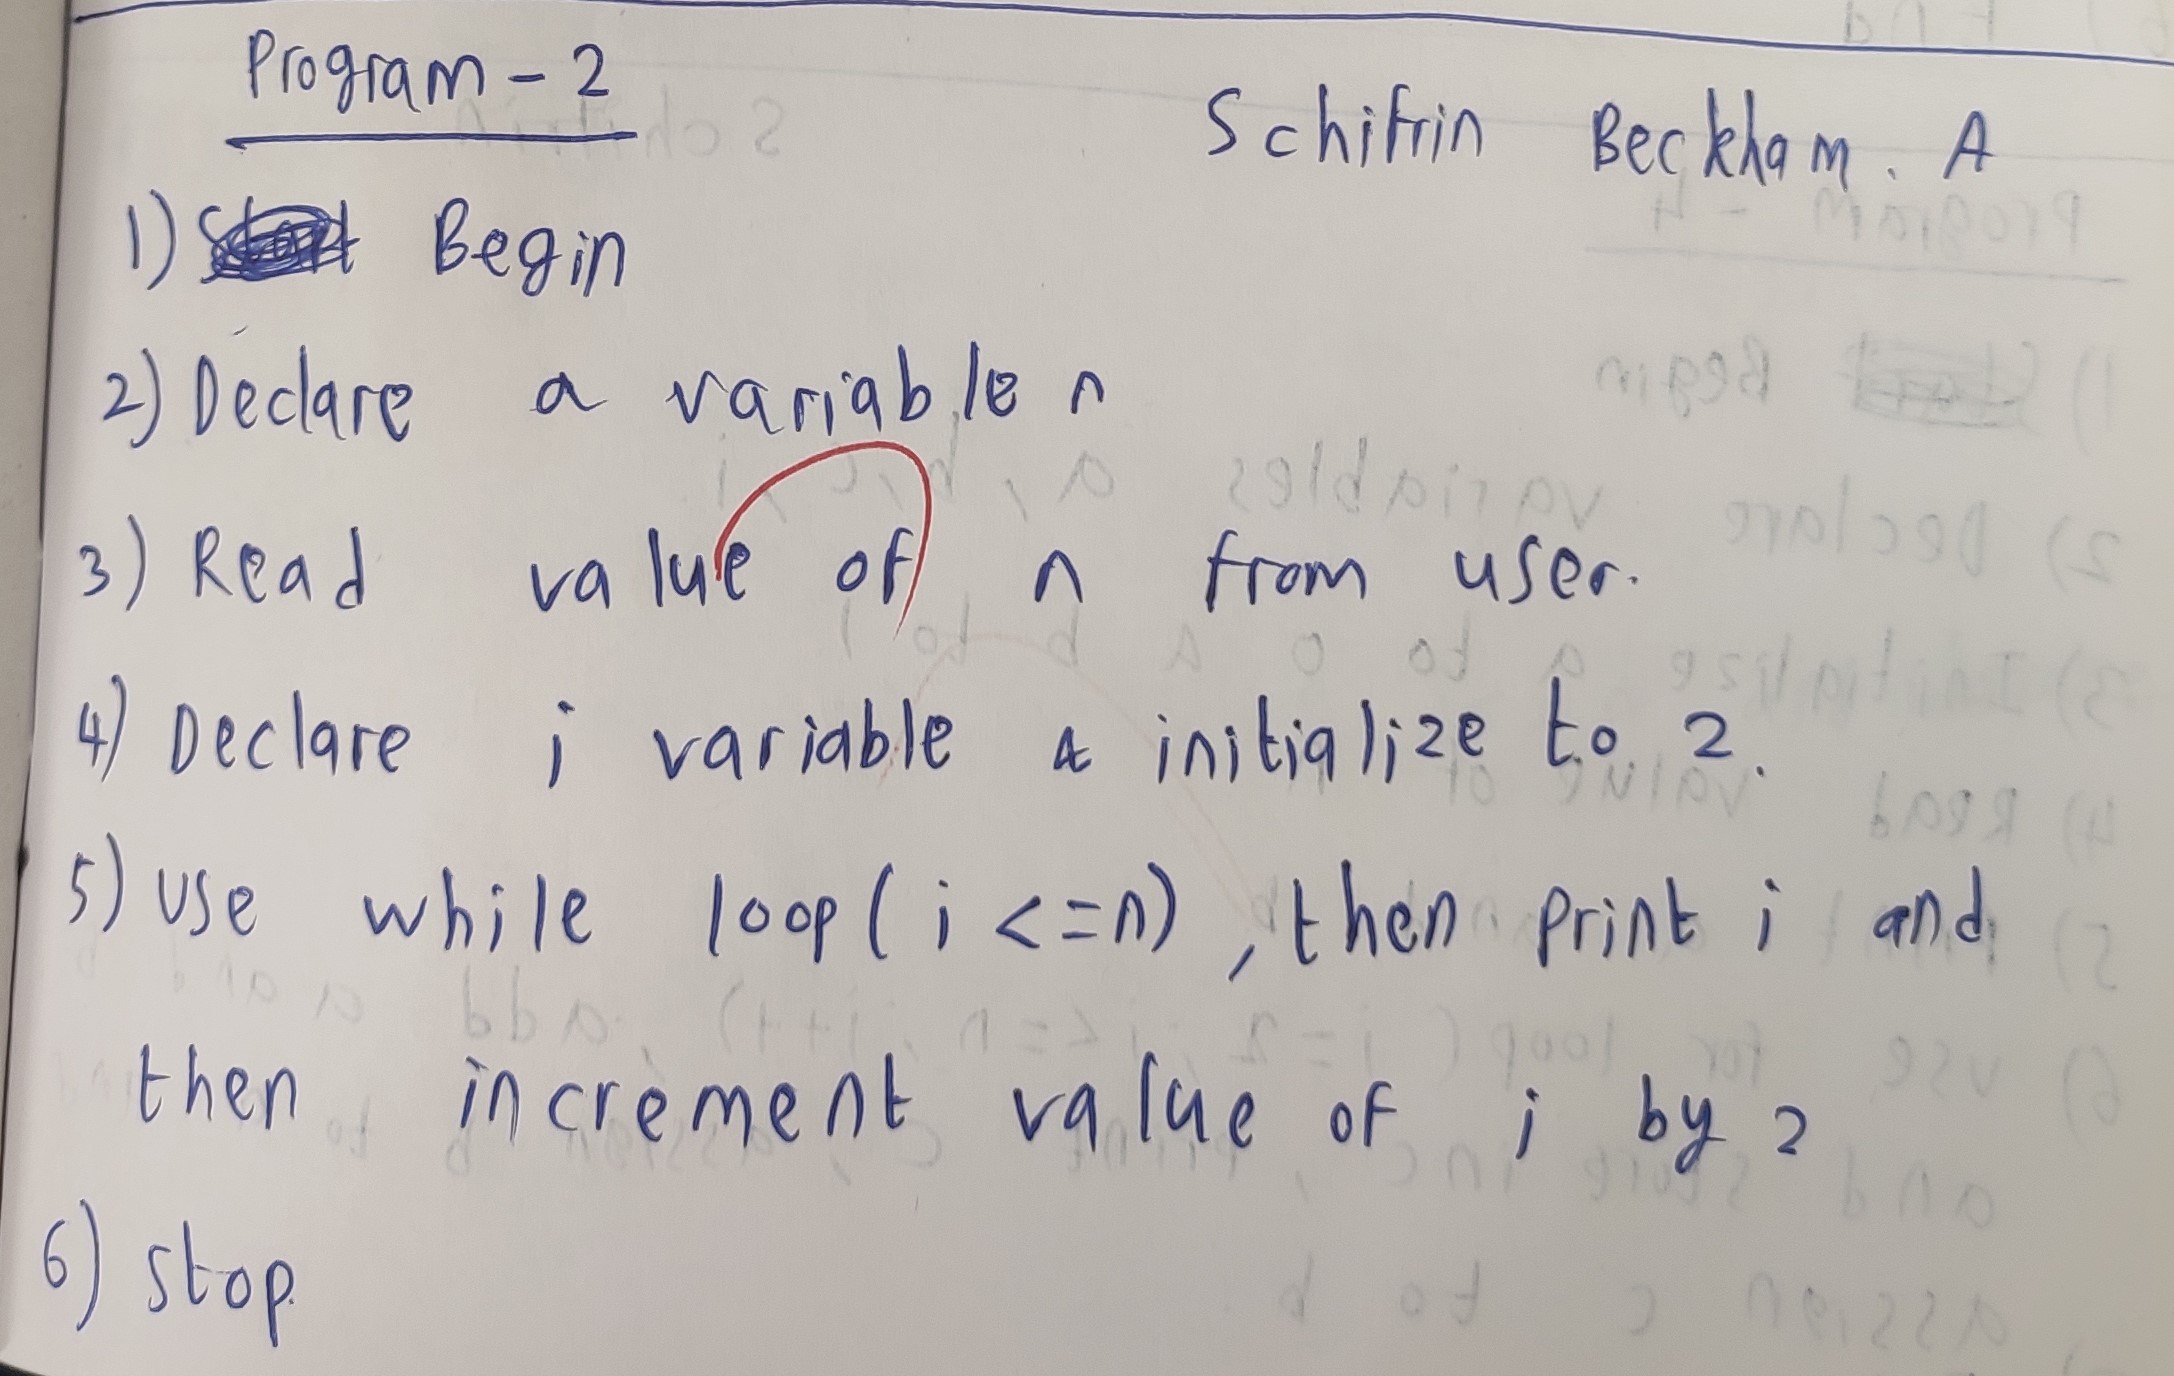 Program - 2
Schifrin Beckham. A
1) Begin
2) Declare a variable n
3) Read value of n from user.
4) Declare i variable & initialize to 2.
5) Use while loop ( i <= n) , then print i and
then increment value of i by 2
6) Stop